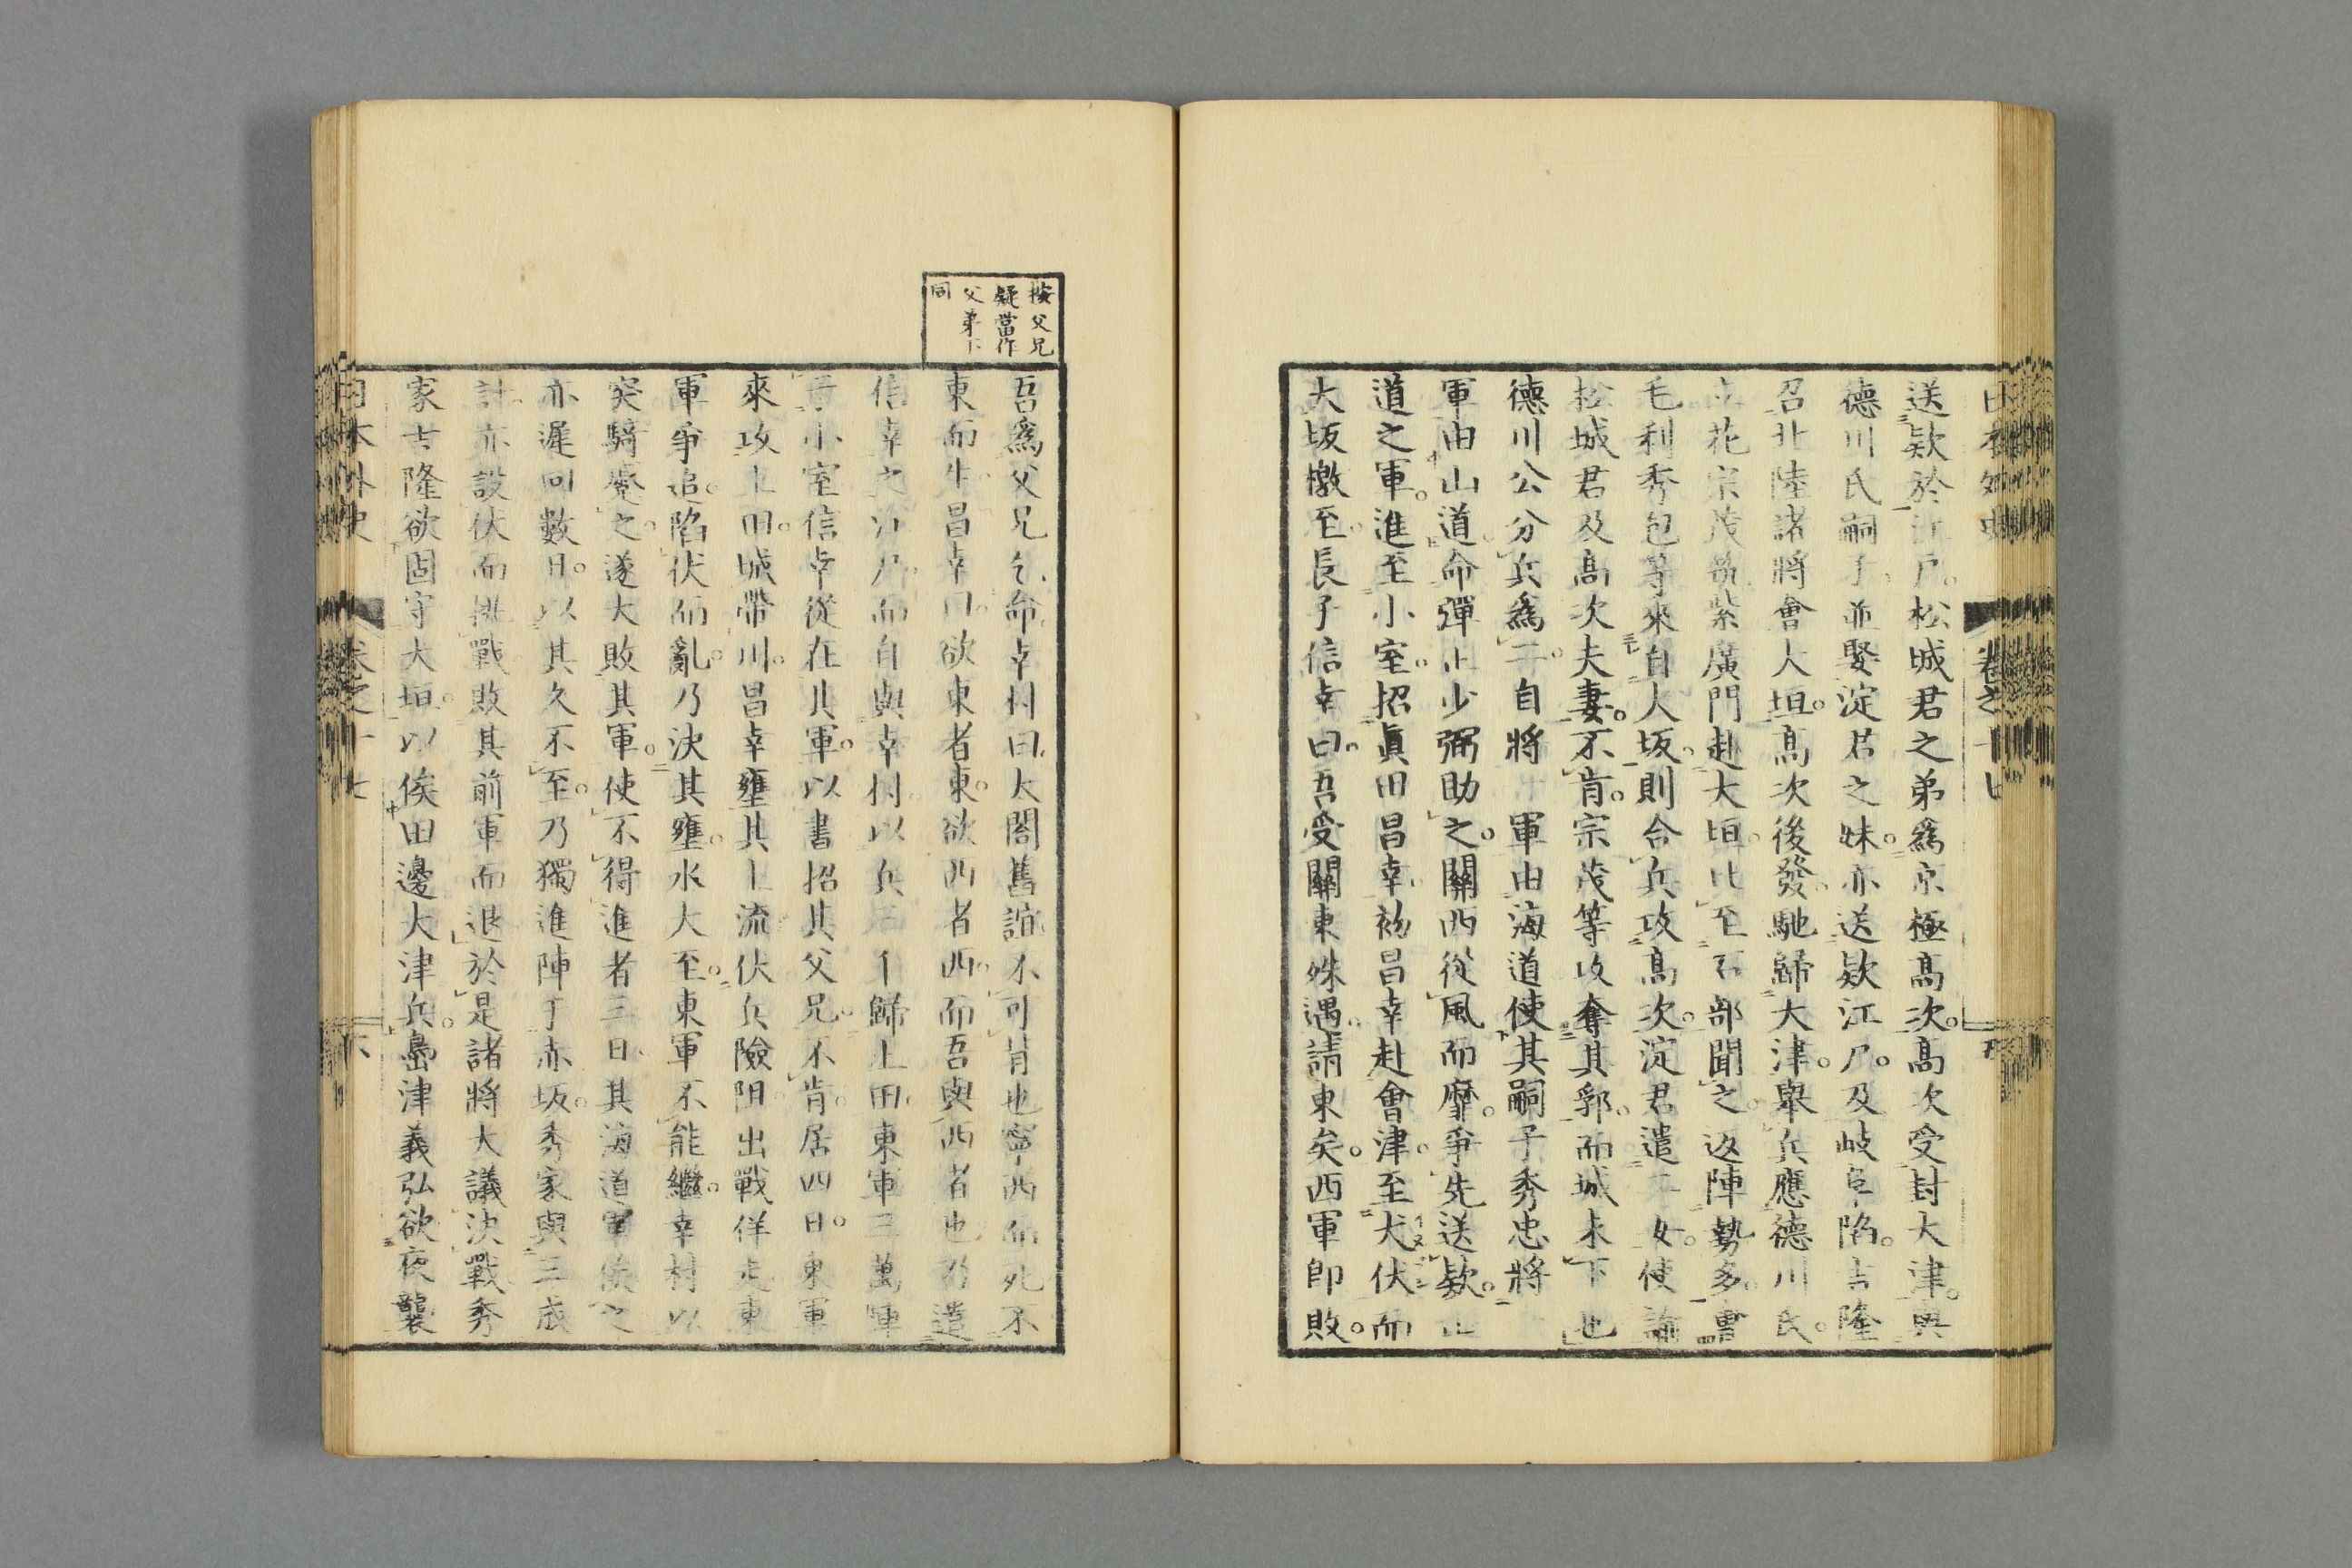 日本外史 卷之十七
送欵於江戶。松城君之弟爲京極高次。高次受封大津。與
德川氏嗣子並娶淀君之妹。亦送欵江戶。及岐阜陷。吉隆
召北陸諸將會大垣。高次後發。馳歸大津。擧兵應德川氏。
立花宗茂筑紫廣門赴大垣。比至石部聞之。返陣勢多。會
毛利秀包等來自大坂。則合兵攻高次。淀君遣二女使諭
松城君及高次夫妻。不肯。宗茂等攻奪其郛。而城未下也
德川公分兵爲二。自將 軍由海道使其嗣子秀忠將
軍由山道命彈正少弼助之。關西從風而靡。爭先送欵。山
道之軍。進至小室。招眞田昌幸。初昌幸赴會津。至犬伏而
大坂檄至。長子信幸曰。吾受關東殊遇。請東矣。西軍卽敗。
按父兄
疑當作
父弟下
同
吾爲父兄乞命。幸村曰。太閤舊誼不可背也。寧西而死不
東而生。昌幸曰。欲東者東。欲西者西。而吾與西者也。乃遣
信幸之江戶。而自與幸村。以兵三千歸上田。東軍三萬陣
于小室。信幸從在其軍。以書招其父兄。不肯。居四日。東軍
來攻上田。城帶川。昌幸壅其上流。伏兵險阻。出戰佯走。東
軍爭追。陷伏而亂。乃決其壅。水大至。東軍不能繼。幸村以
突騎蹙之。遂大敗其軍。使不得進者三日。其海道軍俟之
亦遲回數日。以其久不至。乃獨進陣于赤坂。秀家與三成
計。亦設伏而挑戰。敗其前軍而退。於是諸將大議決戰。秀
家吉隆欲固守大垣。以俟田邊大津兵。島津義弘欲夜襲
日本外史 卷之十七 六